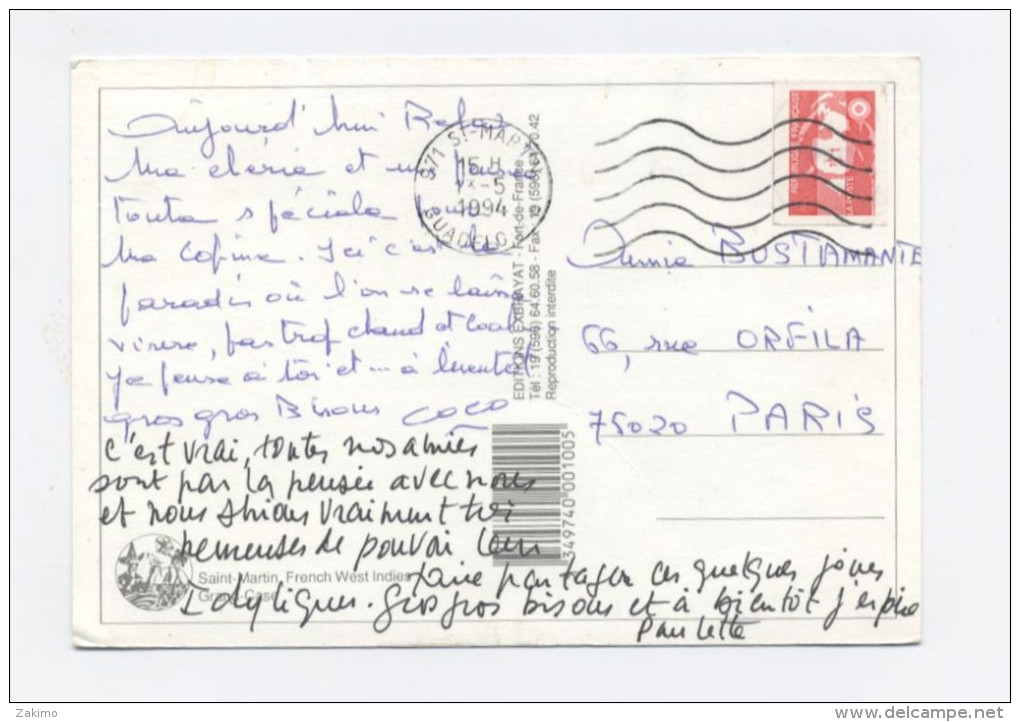 Aujourd'hui Repos
Ma chérie et une pensée
toute spéciale pour
Ma Copine. Ici c'est le
paradis où l'on se laisse
vivre, pas trop chaud et cool
Je pense à toi et ... à bientôt
gros gros Bisous COCO
c'est vrai, toutes nos amies
sont par la pensée avec nous
et nous serions vraiment très
heureuses de pouvoir leur
faire partager ces quelques jours
Idylliques. gros gros bisous et à bientôt j'espère
Paulette
971 ST-MART
15 H
-5
1994
GUADELO
EDITIONS EXBRAYAT - Fort-de-France
Tél : 19 (596) 64.60.58 - Fax 19 (596) 70.42
Reproduction interdite
349740 001005
Saint-Martin, French West Indies
Grand-Case
BUSTAMANTE
66, rue ORFILA
75020 PARIS
Zakimo
www.delcampe.net